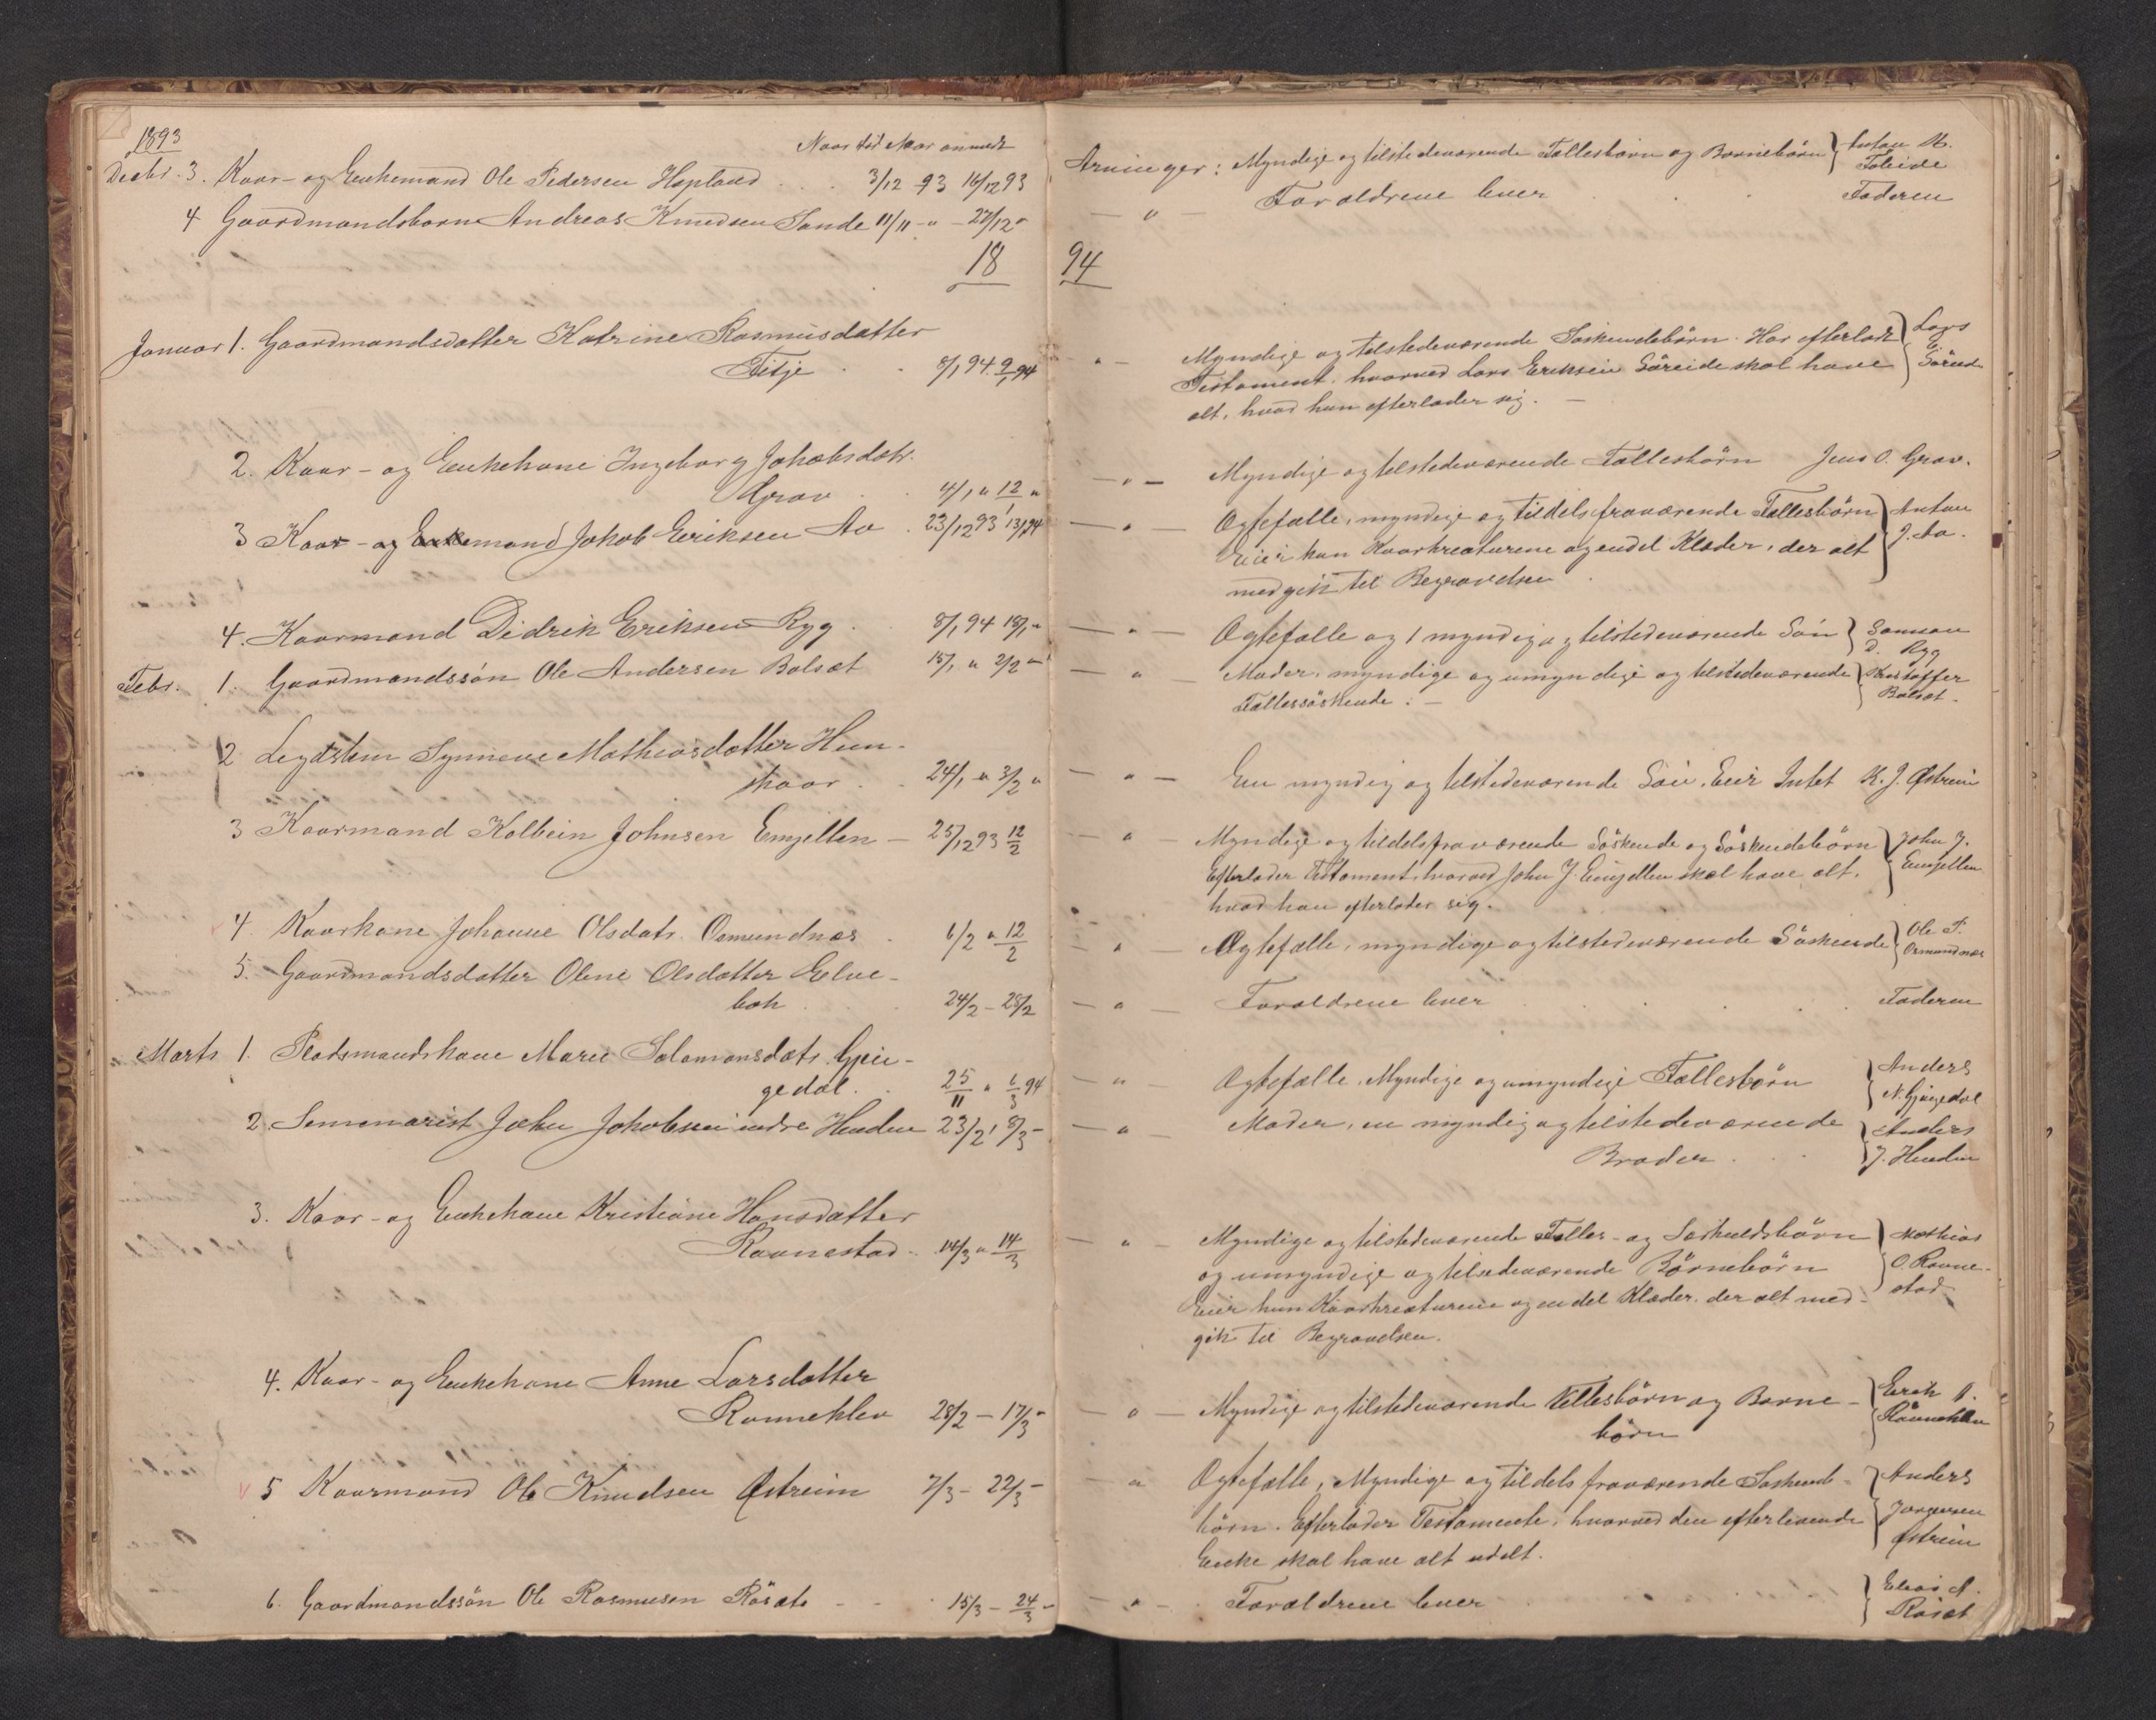 1893
Naar död Naar anmeldt
Decbr. 3. Kaar- og Enkemand Ole Pedersen Hopland 3/12 93 16/12 93
4 Gaardmandsbarn Andreas Knudsen Sande 11/11 - " - 27/12 "
18
Januar 1. Gaardmandsdatter Katrine Rasmusdatter
Fitje 8/1 94. 9/1 94
2. Kaar- og Enkekone Ingeborg Jakobsdatr.
Grov 4/1 " 12/1 "
3 Kaar- og Enkemand Jakob Eriksen Aa 23/12 93 13/1 94
4. Kaarmand Didrik Eriksen Ryg 8/1 94 18/1 "
Febr. 1. Gaardmandssön Ole Andersen Bolsæt 15/1 " 2/2 "
2 Legdslem Synneve Mathiasdatter Hun-
skaar 24/1 " 3/2 "
3 Kaarmand Kolbein Johnsen Emjellen - 25/12 93 12/2
4. Kaarkone Johanne Olsdatr. Osmundnæs 6/2 " 12/2
5. Gaardmandsdatter Oline Olsdatter Elve-
bak 24/2 - 28/2
Marts 1. Pladsmandskone Marie Salamonsdatr. Gjen-
gedal. 25/11 " 6/3 94
2. Semenarist John Jakobsen indre Henden 23/2 8/3 -
3. Kaar- og Enkekone Kristiane Hansdatter
Ravnestad 14/3 " 14/3
4. Kaar- og Enkekone Anne Larsdatter
Rønneklev 28/2 - 17/3 -
5 Kaarmand Ole Knudsen Østreim 7/3 - 22/3 -
6. Gaardmandssön Ole Rasmusen Rösæt 15/3 - 24/3 -
Arvinger: Myndige og tilstedeværende Fællesbørn og Børnebörn } Anton
— " — Forældrene lever Faderen
94
" — Myndige og tilstedeværende Søskendebörn. Har efterladt } Lars
Testament, hvorved Lars Eriksen Søreide skal have } E.
alt, hvad hun efterlader sig. —
— " — Myndige og tilstedeværende Fællesbörn Jens O. Grov.
— " — Ægtefælle, myndige og tildels fraværende Fællesbörn } Anton
Eier kun Kaarkreaturene og endel Klæder, der alt } J. Aa.
medgik til Begravelsen
— " — Ægtefælle og 1 myndig og tilstedeværende Sön }
D. Ryg
— " — Moder, myndige og umyndige og tilstedeværende } Kristoffer
Fællessöskende. — Bolsæt.
— " — En myndig og tilstedeværende Sön. Eier Intet K. J. Østreim
— " — Myndige og tildels fraværende Söskende og Söskendebörn } John J.
Efterlader Testament, hvorved John J. Emjellen skal have alt, } Emjellen
hvad han efterlader sig.
" Ægtefælle, myndige og tilstedeværende Söskende } Ole P.
Osmundnæs
— " — Forældrene lever Faderen
— " — Ægtefælle. Myndige og umyndige Fællesbörn } Anders
N. Gjengedal
— " — Moder, en myndig og tilstedeværende } Anders
Broder. } J. Henden
— " — Myndige og tilstedeværende Fælles- og Særkuldsbörn } Mathias
og umyndige og tilstedeværende Börnebörn } O. Ravne-
Eier kun Kaarkreaturene og en del Klæder, der alt med- stad
gik til Begravelsen.
— " — Myndige og tilstedeværende Fellesbörn og Børne- } Erik A.
börn Rønneklev
" Ægtefælle, Myndige og tildels fraværende Søskende- } Anders
börn. Efterlader Testamente, hvorved den efterlevende } Jørgensen
Enke skal have alt udelt. Østreim
— " — Forældrene lever } Elias A.
Rösæt